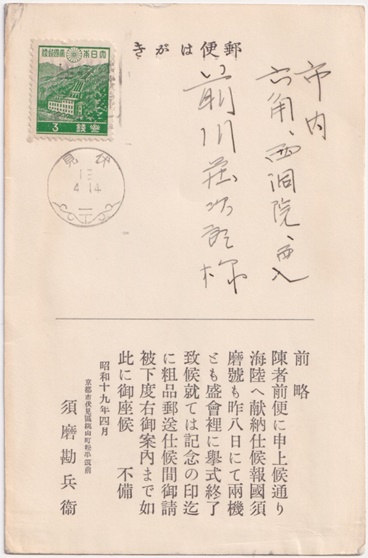 郵便はがき
大日本帝國郵便
3
錢
市内
六角、西洞院、西入
前川
様
伏見
4.14
前略
陳者前便に申上候通り
海陸へ献納仕候報國須
磨號も昨八日にて兩機
とも盛會裡に擧式終了
致候就ては記念の印迄
に粗品郵送仕候間御請
被下度右御案内まで如
此に御座候　不備
昭和十九年四月
京都市伏見區桃山町
須磨勘兵衞